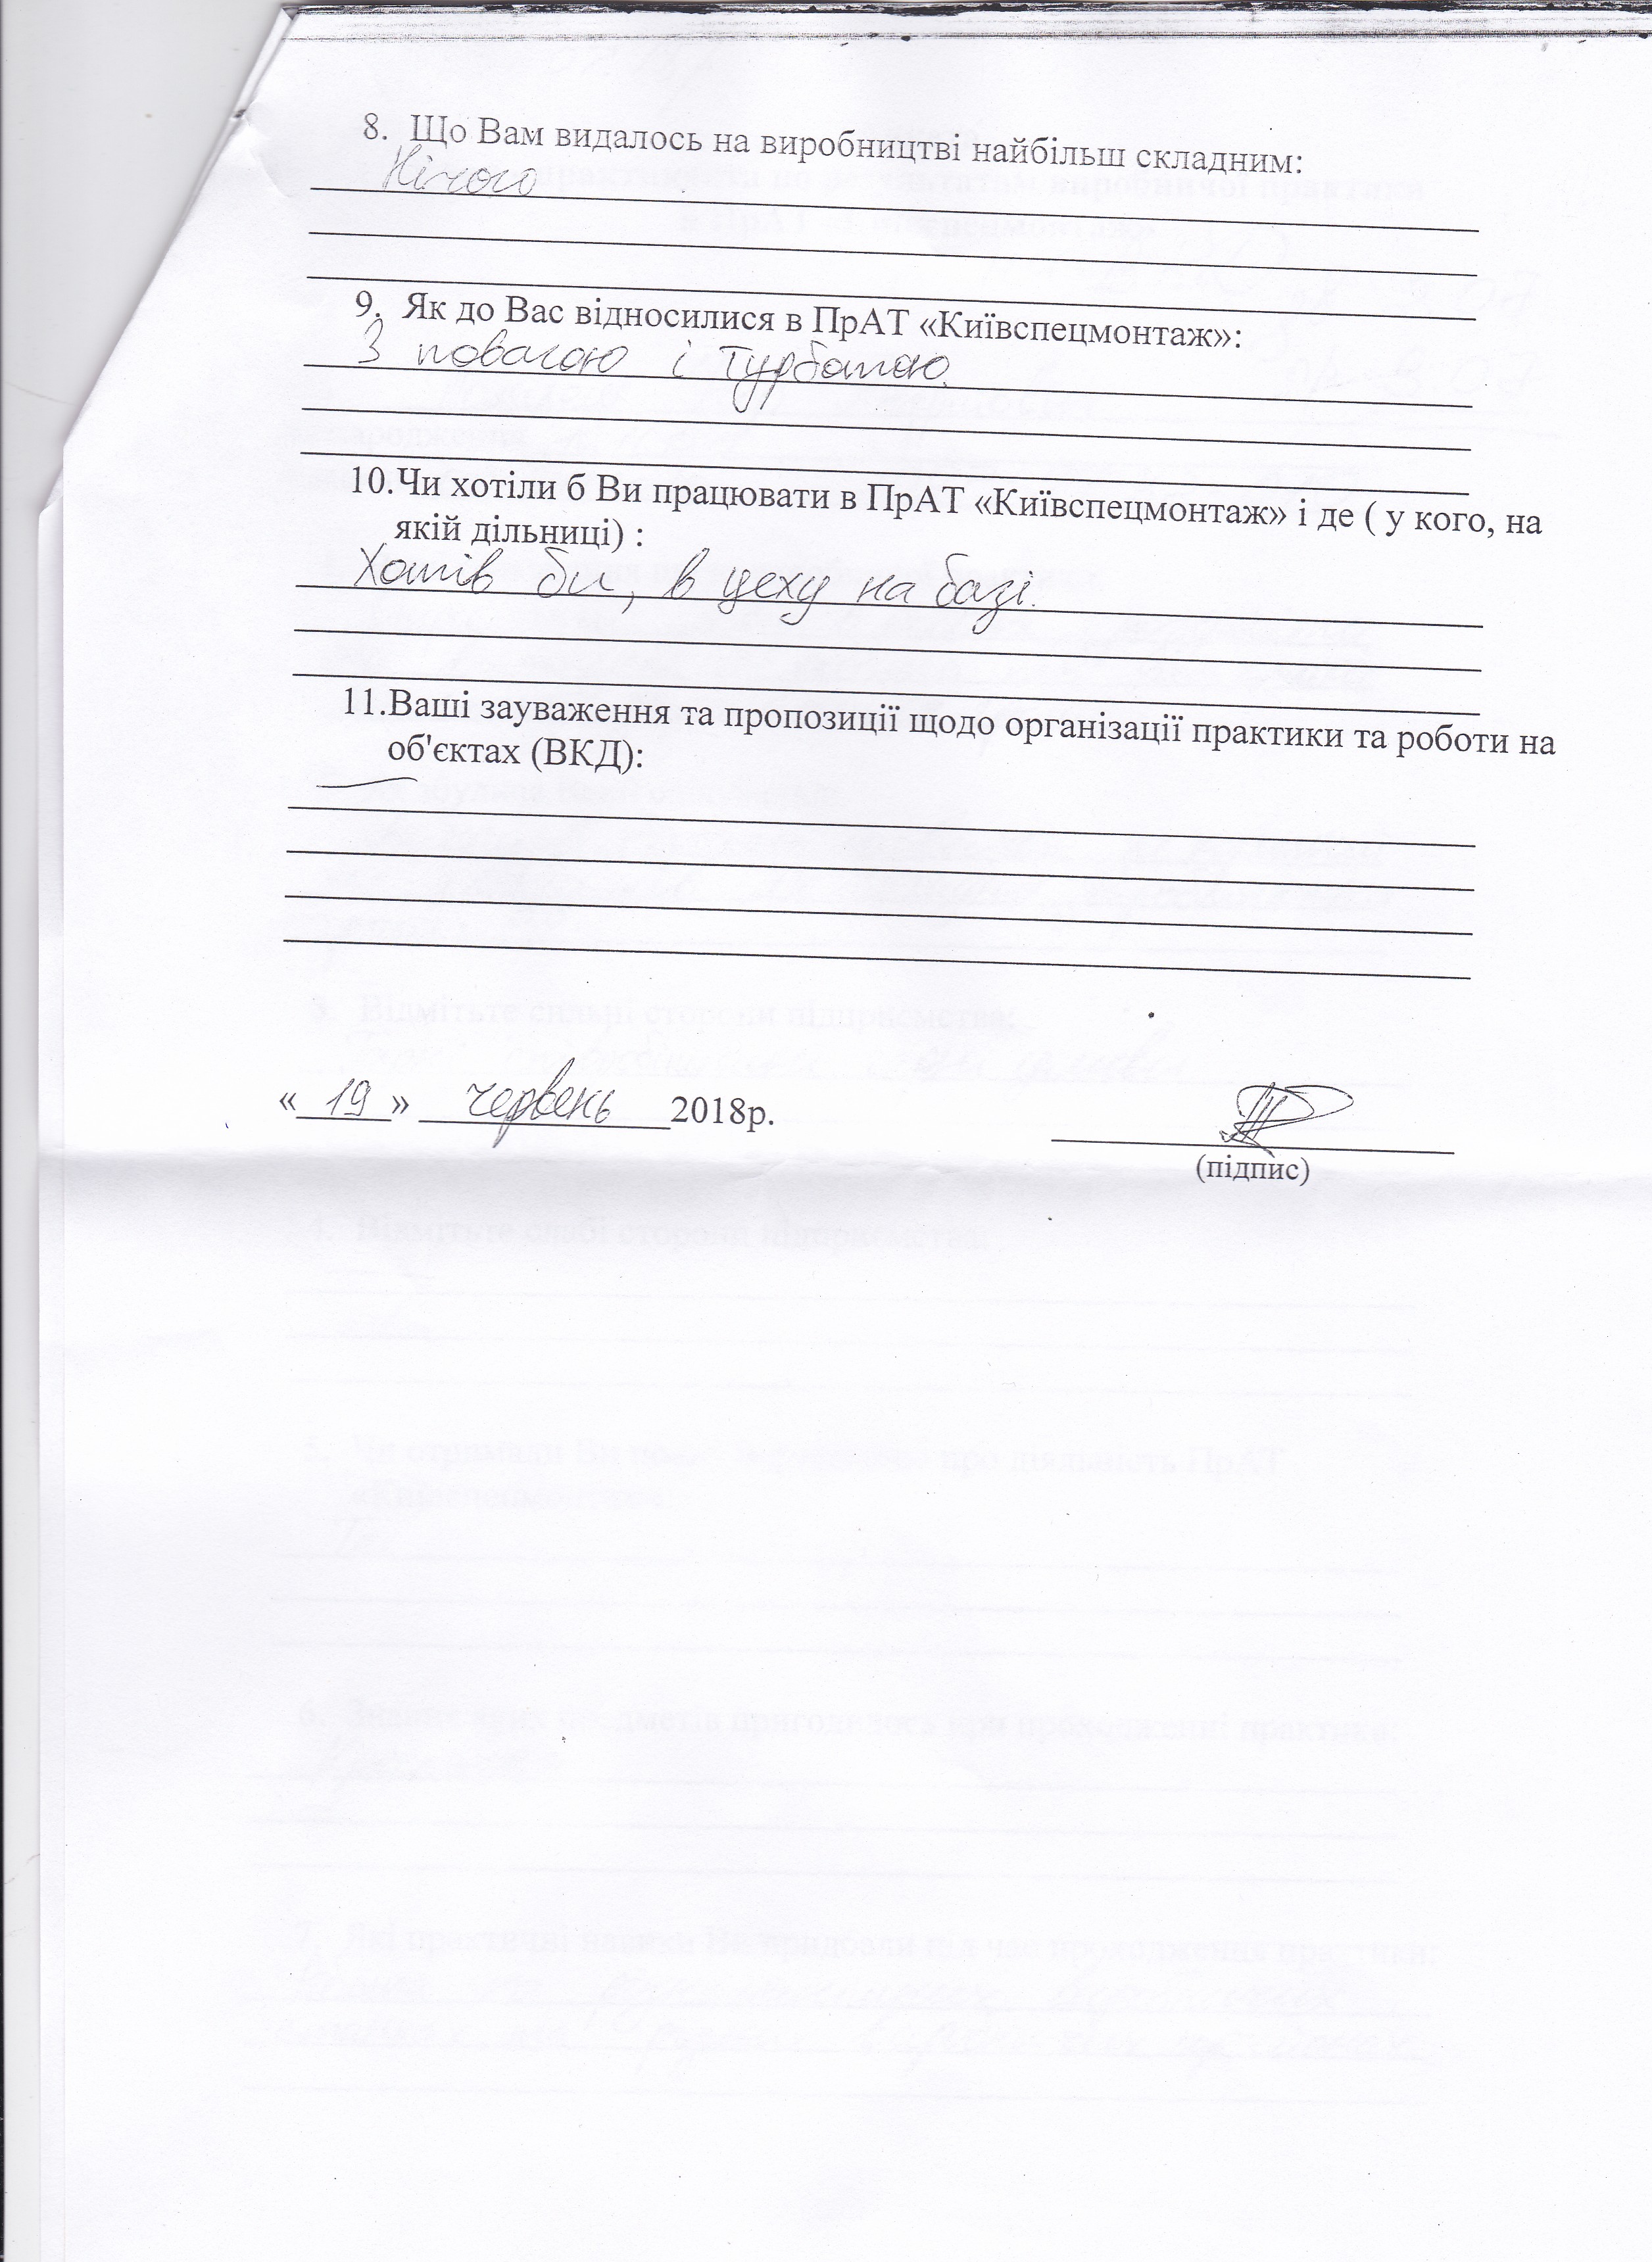 8. Що Вам видалось на виробництві найбільш складним:
Нічого
9. Як до Вас відносилися в ПрАТ «Київспецмонтаж»:
З повагою і турботою.
10.Чи хотіли б Ви працювати в ПрАТ «Київспецмонтаж» і де ( у кого, на
якій дільниці) :
Хотів би, в цеху на базі.
11.Ваші зауваження та пропозиції щодо організації практики та роботи на
об'єктах (ВКД):
—
« 19 » червень 2018р.
(підпис)